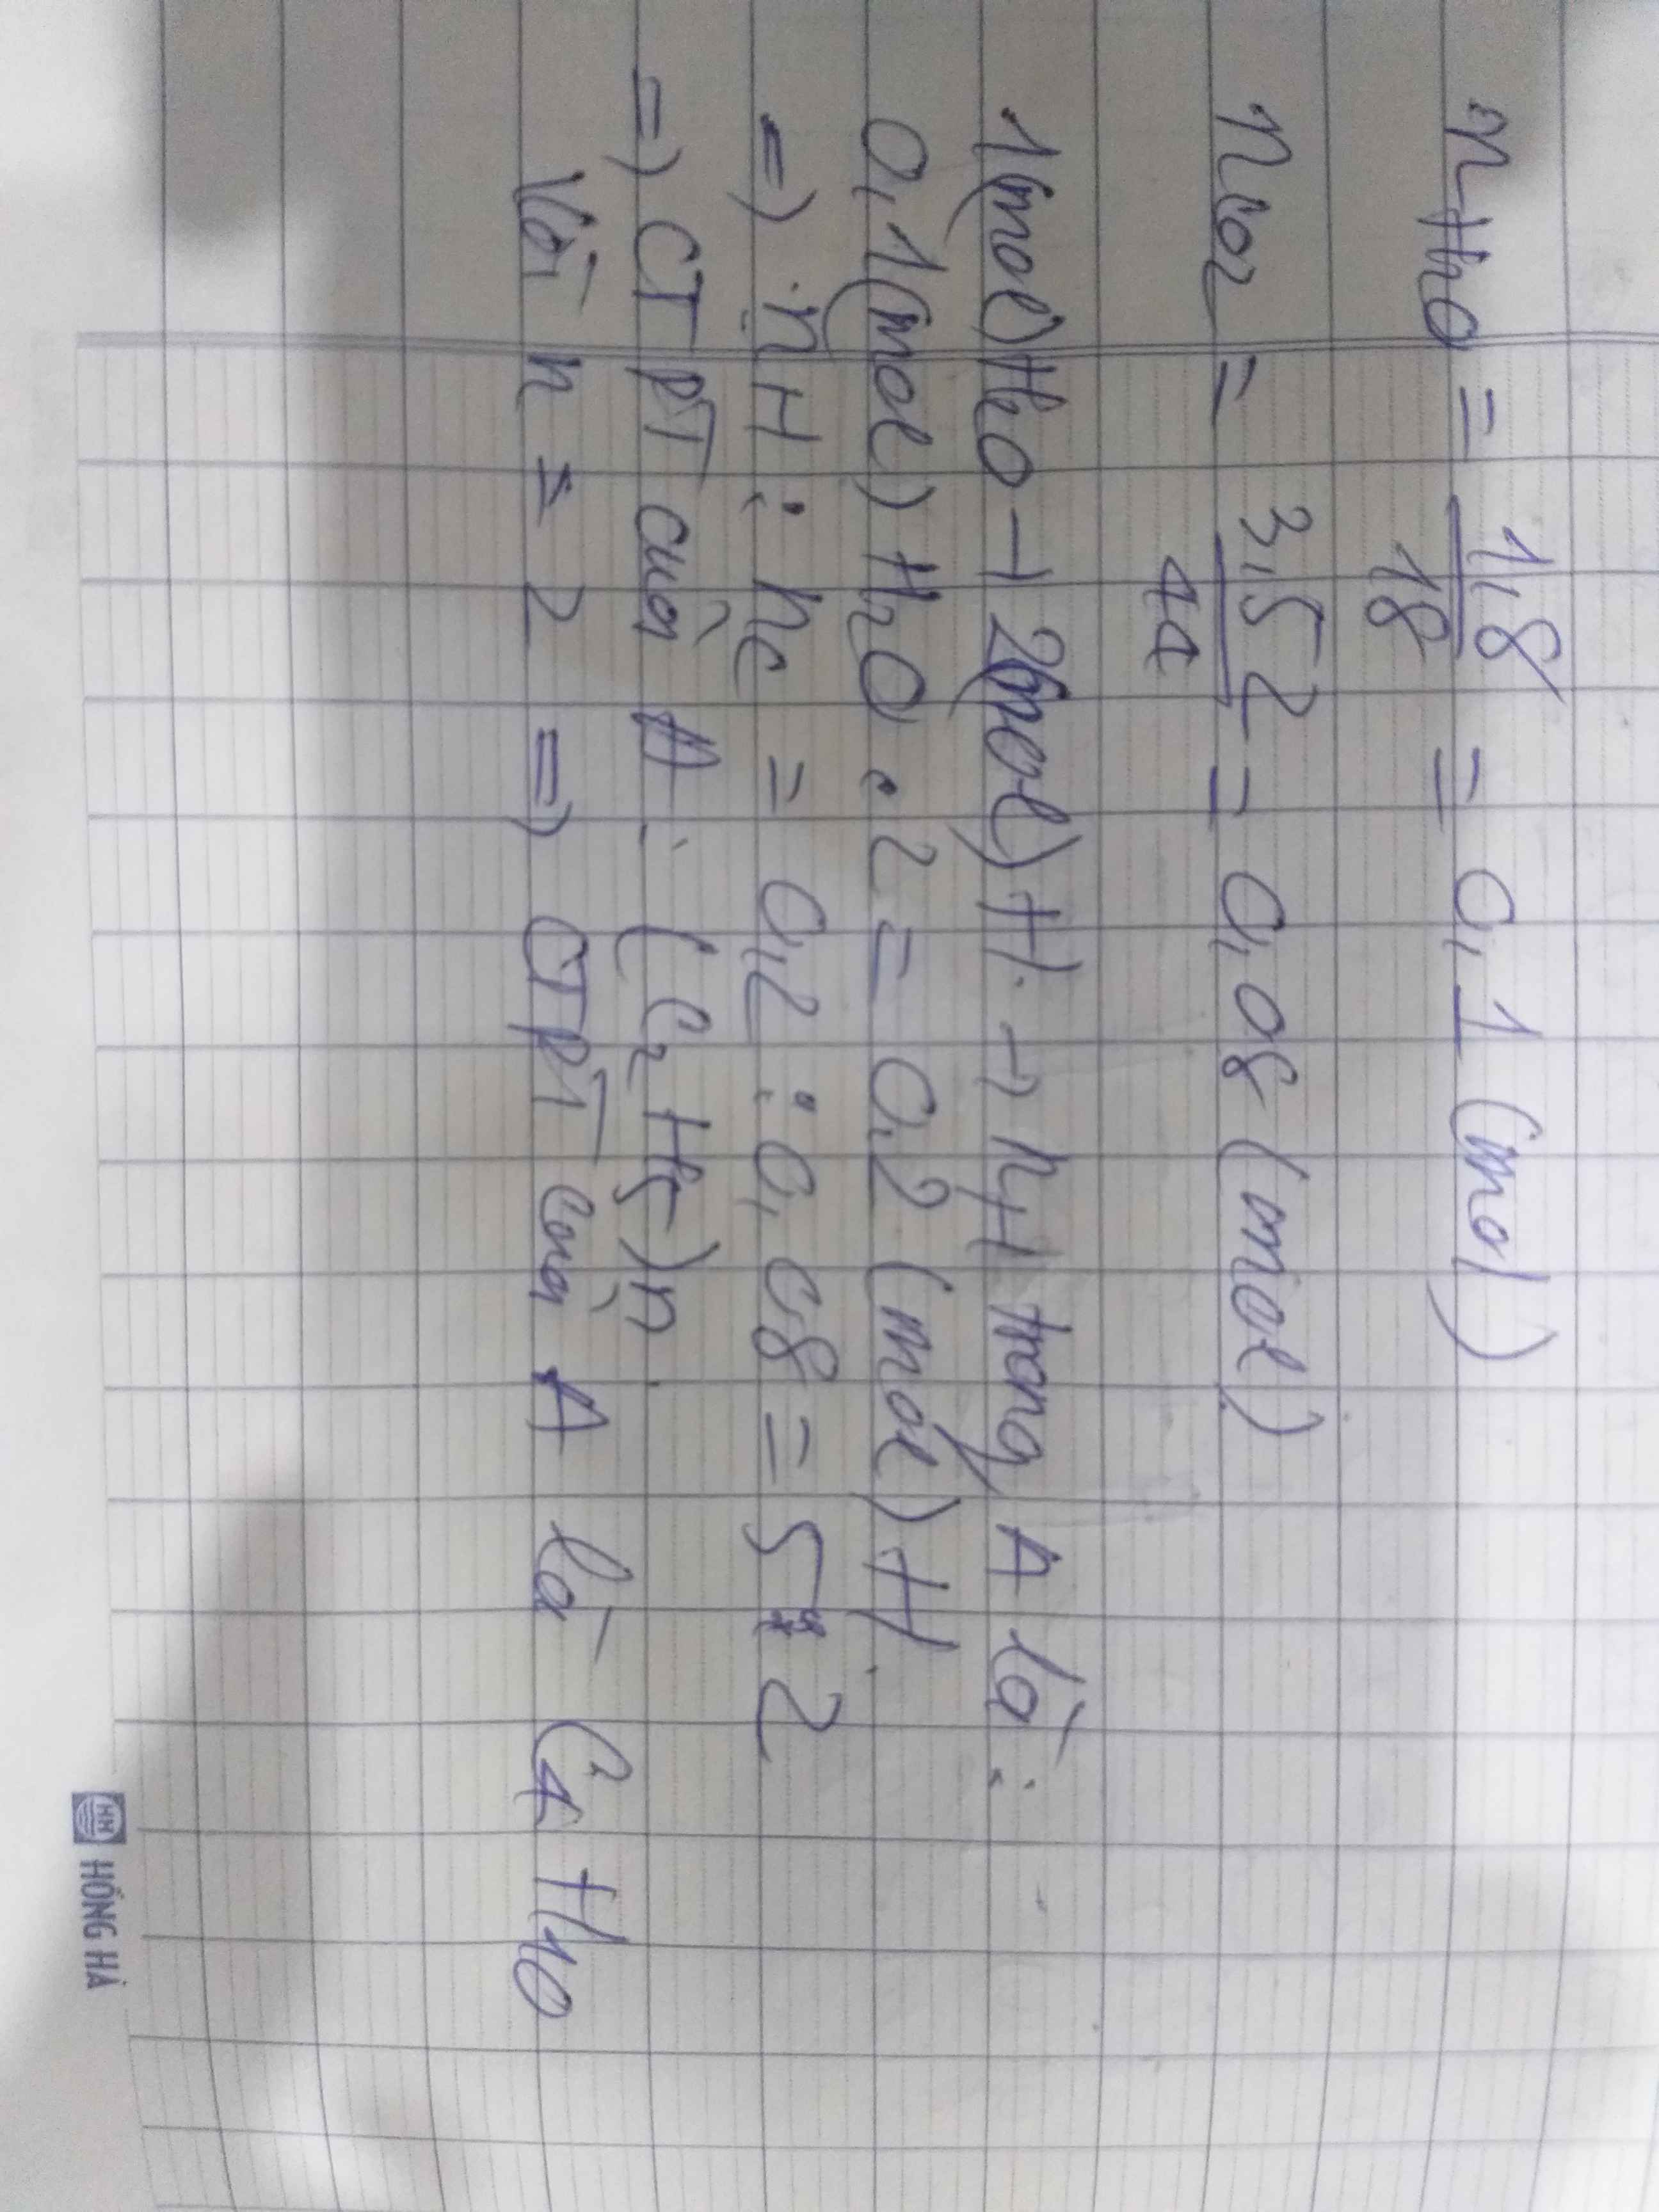 nH₂O = 1,8/18 = 0,1 (mol)
nCO2 = 3,52/44 = 0,08 (mol)
1(mol) H₂O → 2(mol) H. → nH trong A là:
0,1(mol) H₂O . 2 = 0,2 (mol) H.
=> nH : nC = 0,2 : 0,08 = 5 : 2
=> CTPT của A : (C₂H₅)n.
Với n = 2 => CTPT của A là C₄H₁₀
HỒNG HÀ